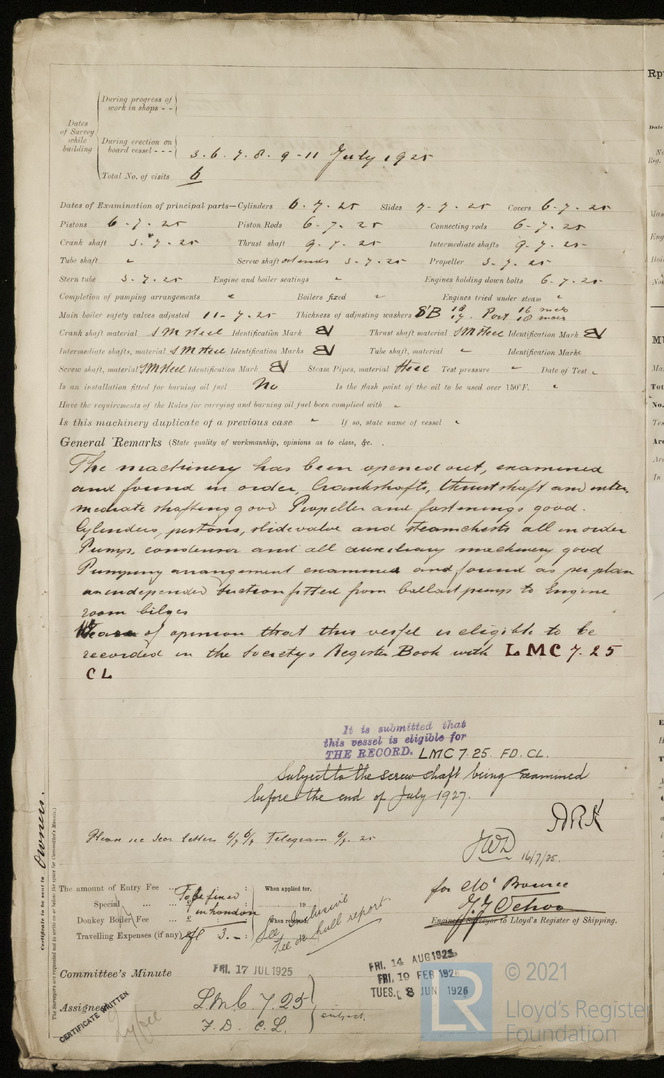 During progress of
work in shops - -
Dates
of Survey
while
building
During erection on
board vessel - - -
3. 6. 7. 8. 9 - 11 July 1925
Total No. of visits 6
Dates of Examination of principal parts—Cylinders 6. 7. 25 Slides 7. 7. 25 Covers 6. 7. 25
Pistons 6. 7. 25 Piston Rods 6. 7. 25 Connecting rods 6. 7. 25
Crank shaft 3. 7. 25 Thrust shaft 9. 7. 25 Intermediate shafts 9. 7. 25
Tube shaft " Screw shaft 3. 7. 25 Propeller 3. 7. 25
Stern tube 3. 7. 25 Engine and boiler seatings " Engines holding down bolts 6. 7. 25
Completion of pumping arrangements " Boilers fixed " Engines tried under steam "
Main boiler safety valves adjusted 11 - 7. 25 Thickness of adjusting washers S'B Port
Crank shaft material S M Steel Identification Mark Thrust shaft material S M Steel Identification Mark
Intermediate shafts, material S M Steel Identification Marks Tube shaft, material " Identification Marks
Screw shaft, material S M Steel Identification Mark Steam Pipes, material Steel Test pressure " Date of Test "
Is an installation fitted for burning oil fuel No Is the flash point of the oil to be used over 150°F. "
Have the requirements of the Rules for carrying and burning oil fuel been complied with "
Is this machinery duplicate of a previous case " If so, state name of vessel "
General Remarks (State quality of workmanship, opinions as to class, &c.
The machinery has been opened out, examined
and found in order, Crankshafts, thrustshaft and inter
mediate shafting good Propeller and fastenings good.
Cylinders, pistons, slidevalve and steamchests all in order
Pumps, condensor and all auxiliary machinery good
Pumping arrangement examined and found as per plan
an independent suction fitted from ballast pumps to Engine
room bilges
of opinion that this vessel is eligible to be
recorded in the Societys Register Book with LMC 7. 25
CL
It is submitted that
this vessel is eligible for
THE RECORD. LMC 7. 25. FD. CL.
Subject to the screw shaft being examined
before the end of July 1927.
ARK
JWD
16/7/25.
Please see letters Telegram
Certificate to be sent to Owners.
The Surveyors are requested not to write on or below the space for Committee's Minute.
The amount of Entry Fee ... To be fixed When applied for,
Special ... ... £ in London 19
Donkey Boiler Fee ... £ When received,
Travelling Expenses (if any) fl 3. -
See on hull report
for
Engineer Surveyor to Lloyd's Register of Shipping.
Committee's Minute FRI. 17 JUL 1925
FRI. 14 AUG 1925
FRI. 19 FEB 1926
TUES. 8 JUN 1926
Assigned LMC 7.25
F.D. C.L. subject.
CERTIFICATE WRITTEN
LR
© 2021
Lloyd's Register
Foundation
Rp